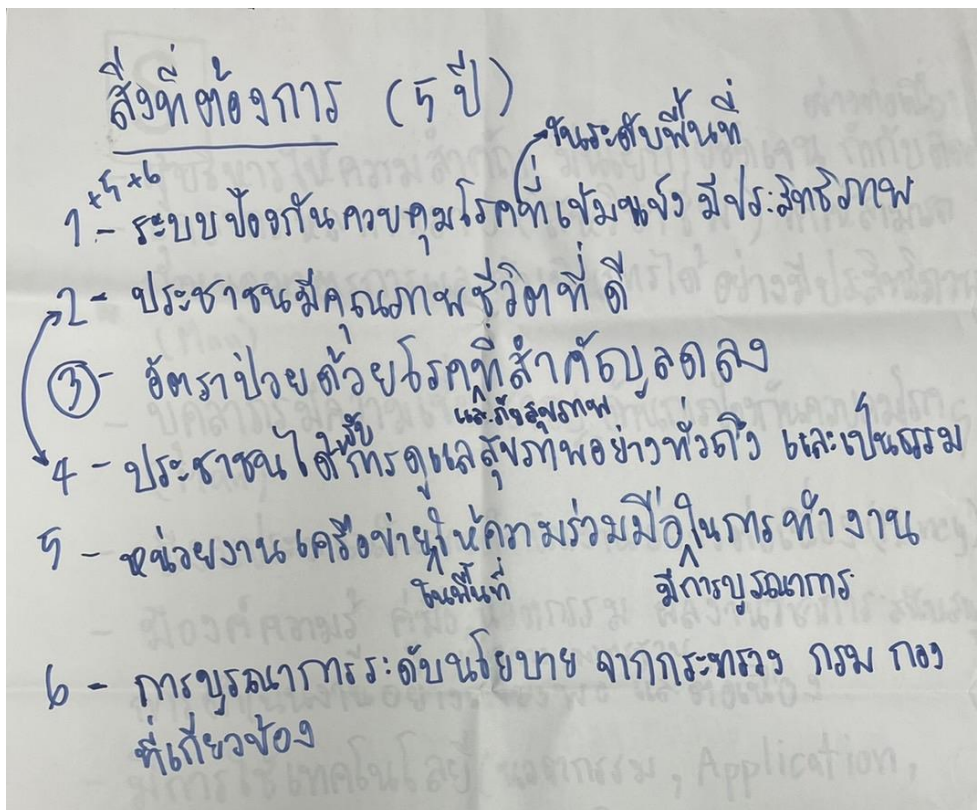 สิ่งที่ต้องการ (5 ปี)
ในระดับพื้นที่
+5 +6
1 - ระบบป้องกันควบคุมโรคที่เข้มแข็ง มีประสิทธิภาพ
2 - ประชาชนมีคุณภาพชีวิตที่ดี
3 - อัตราป่วยด้วยโรคที่สำคัญลดลง
และภัยสุขภาพ
4 - ประชาชนได้รับการดูแลสุขภาพอย่างทั่วถึง และเป็นธรรม
5 - หน่วยงานเครือข่ายให้ความร่วมมือในการทำงาน
ในพื้นที่ มีการบูรณาการ
6 - การบูรณาการระดับนโยบาย จากกระทรวง กรม กอง
ที่เกี่ยวข้อง